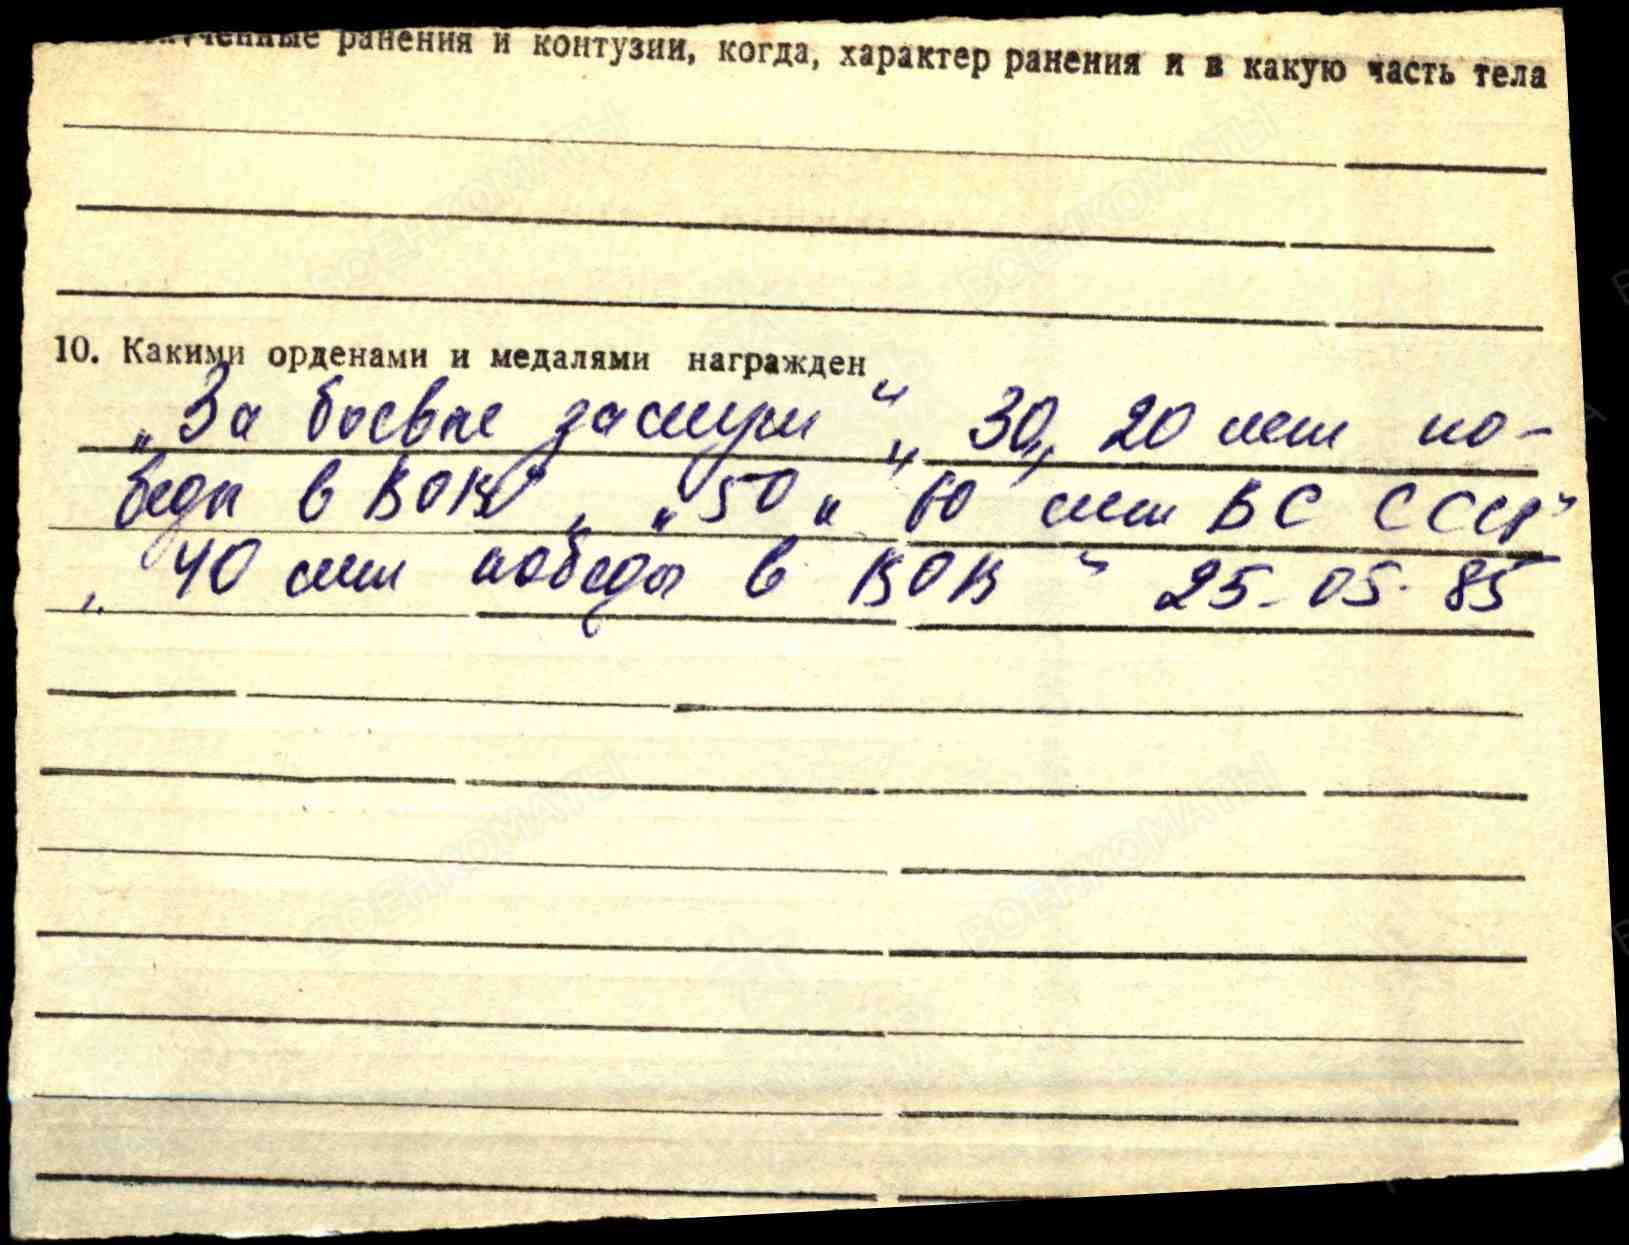 ранения и контузии, когда, характер ранения и в какую часть тела
10. Какими орденами и медалями награжден
„За боевые заслуги“ „30„ 20 лет по-
беды в ВОВ“ „ „50 „ 60 лет ВС СССР“
„40 лет победы в ВОВ“ 25-05-85
ВОЕНКОМАТЫ ВОЕНКОМАТЫ
ВОЕНКОМАТЫ ВОЕНКОМАТЫ